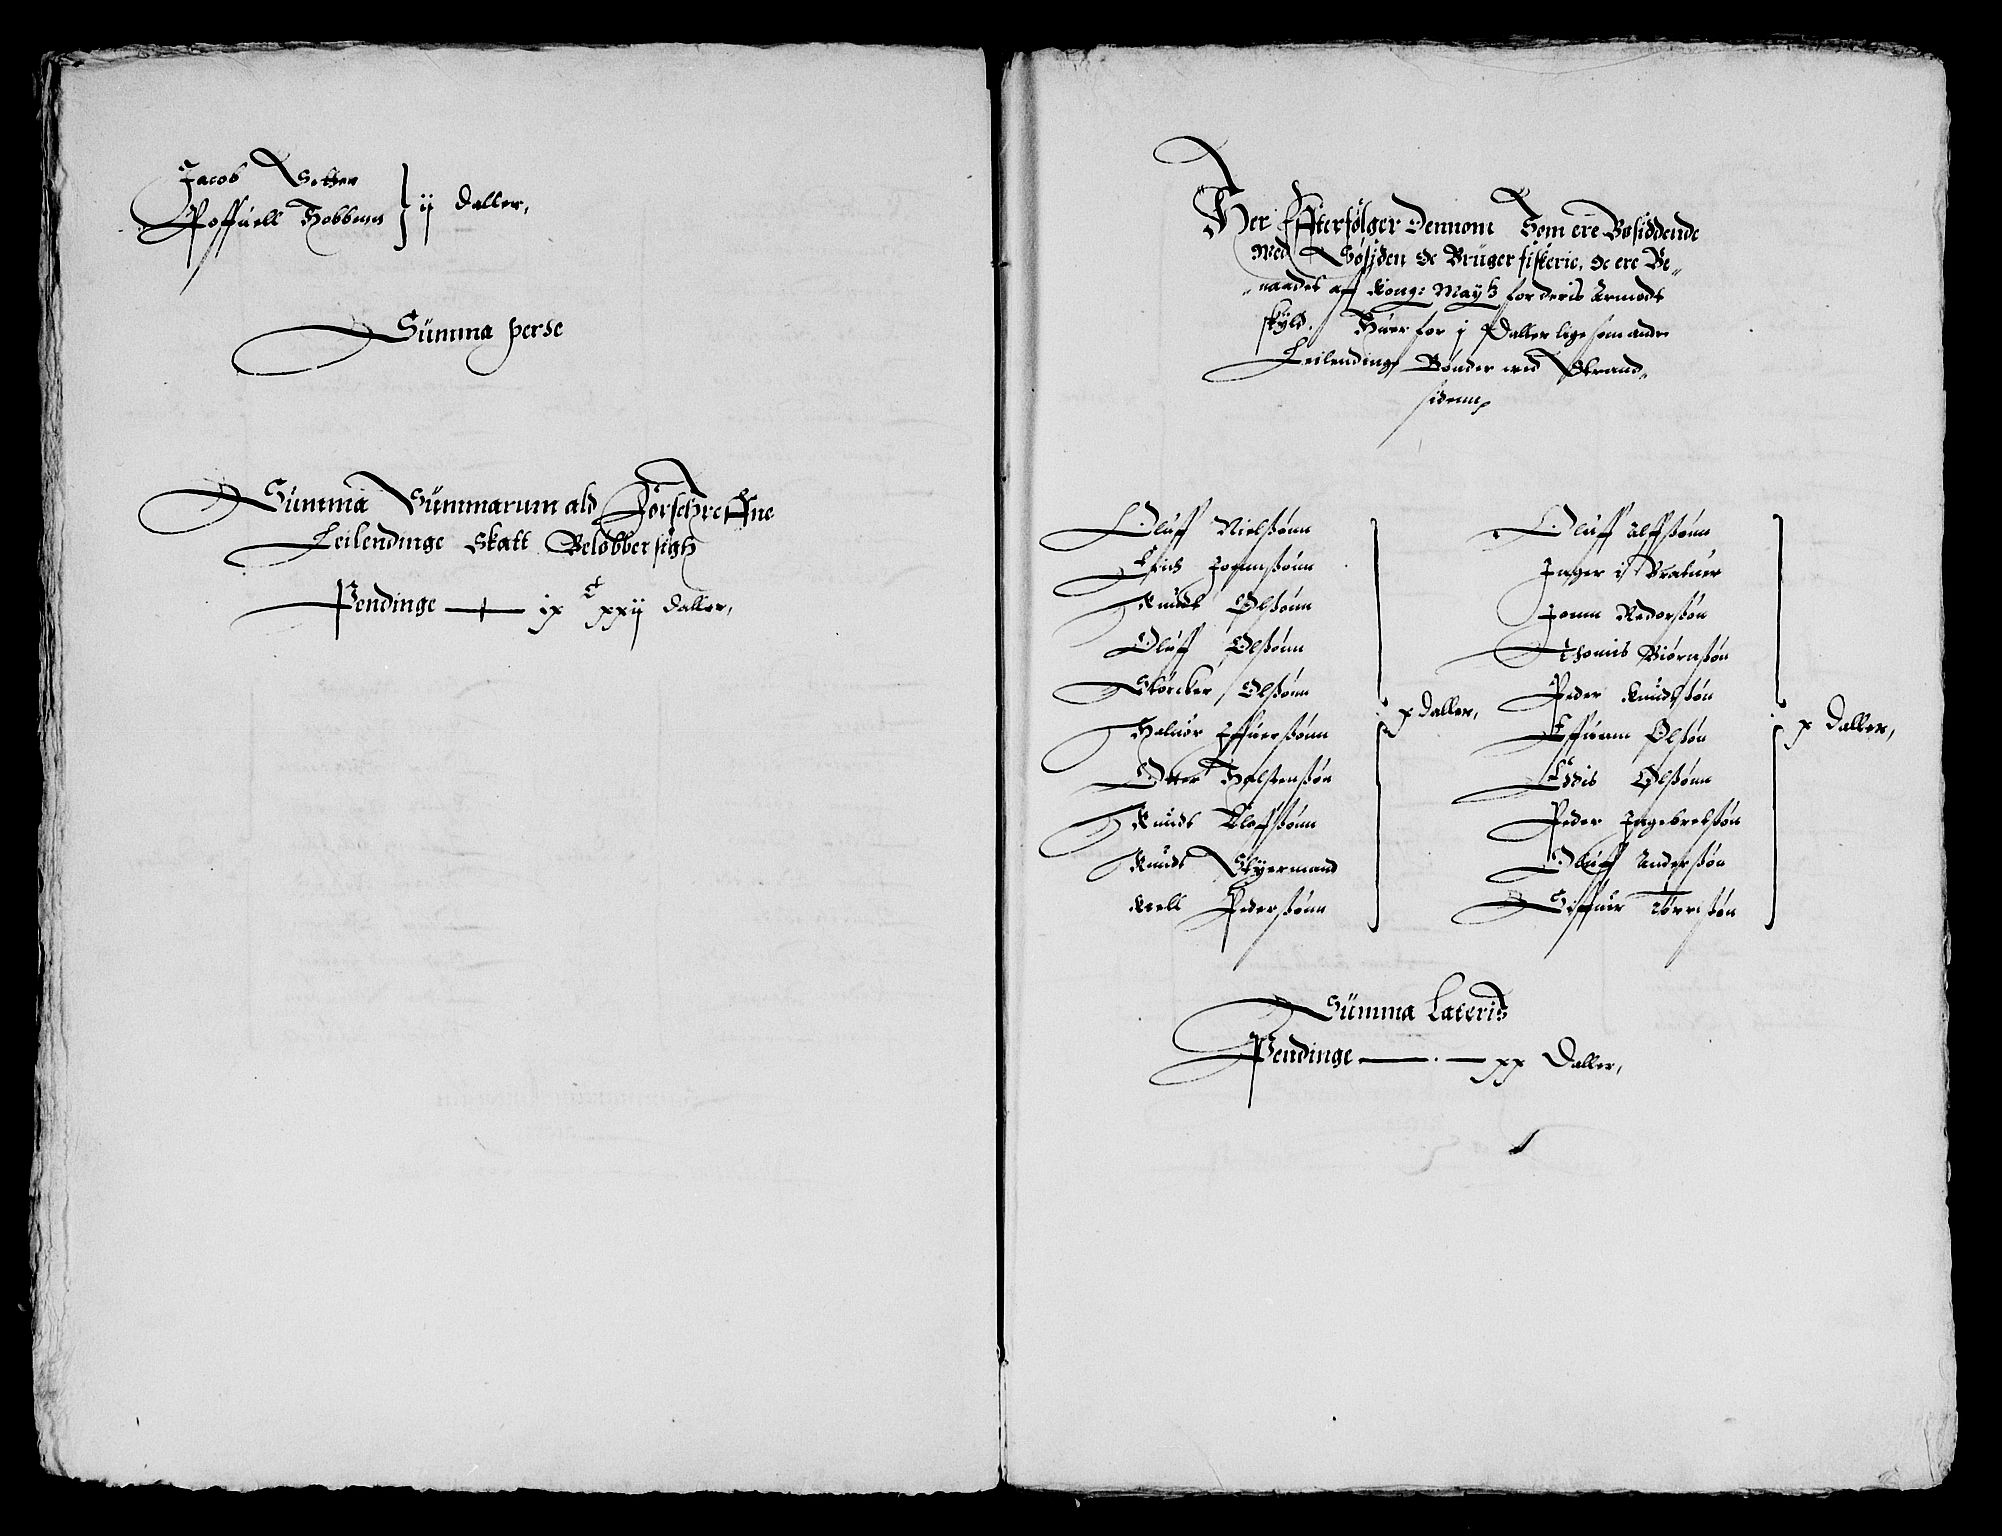 Jacob Setter
Poffuell Hobbenn } ij Daller,
Summa perse
Summa Summarum ald Forschreffne
Leilendinge Skatt Beløbber sigh
Pendinge — ix C xxij Daller,
Her Effterfølger Dennom Som ere Bosiddende
Wed Søsiden oc Bruger fiskerie, oc ere Be„
„naadet aff Kong: May: for deris Armods
skyld. Huer for j Daller lige som andre
Leilendings Bønder wed Strand„
sidenn,
Oluff Nielsønn
Erich Joennsønn
Knudt Olsønn
Oluff Olsønn
Størcker Olsønn
Haluor Effuersønn
Otter Halstensøn
Knuds Olofsønn
Knuds Styermand
Kiell Pedersønn
x Daller,
Oluff Alffsønn
Inger i
Jonn Redorsøn
Thomis Biørnsøn
Peder Knudssøn
Effuenn Olsøn
Eris Olsønn
Peder Ingebretsøn
Oluff Andersøn
Siffuir Tørrisøn
x Daller,
Summa Lateris
Pendinge — xx Daller,